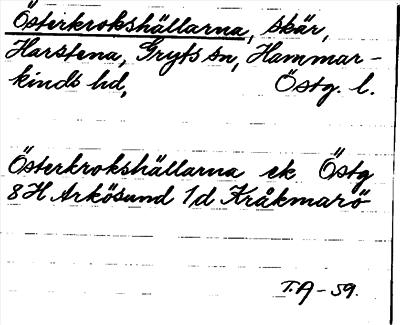 Österkrokshällarna, skär,
Harstena, Gryts sn, Hammar-
kinds hd, Östg. l.
Österkrokshällarna ek Östg
8H Arkösund 1d Kråkmarö
T.A-59.